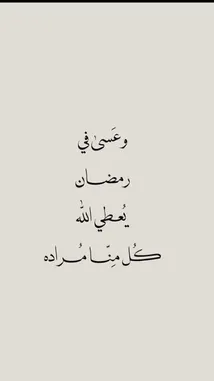 وعَسىٰ في
رمضــان
يُعـطي الله
كُل مِنّــا مُــراده